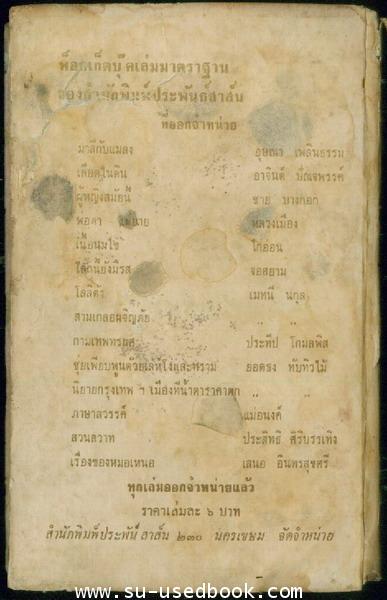 พ็อกเก็ตบุ๊คเล่มมาตราฐาน
ของสำนักพิมพ์ประพันธ์สาส์น
ที่ออกจำหน่าย
มาลีกับแมลง อุษณา เพลินธรรม
เลือดในดิน อาจินต์ ปัญจพรรค์
ผู้หญิงสมัยนี้ ชาย บางกอก
หลวงเมือง
เนื้อนมไข่ ไก่อ่อน
จอสยาม
โลลิต้า เมทนี นกุล
สามเกลอผจิญภัย " "
กามเทพทรยศ ประทีป โกมลพิส
ซุ่ยเพียบพูนด้วยเล่ห์โง่และทราม ยอดธง ทับทิวไม้
นิยายกรุงเทพ ฯ เมืองที่น้ำตาราคาตก " "
ภาษาสวรรค์ แม่อนงค์
สวนสวาท ประสิทธิ์ ศิริบรรเทิง
เรื่องของหมอเหนอ เสนอ อินทรสุขศรี
ทุกเล่มออกจำหน่ายแล้ว
ราคาเล่มละ ๖ บาท
สำนักพิมพ์ประพันธ์สาส์น ๒๓๐ นครเขษม จัดจำหน่าย
www.su-usedbook.com